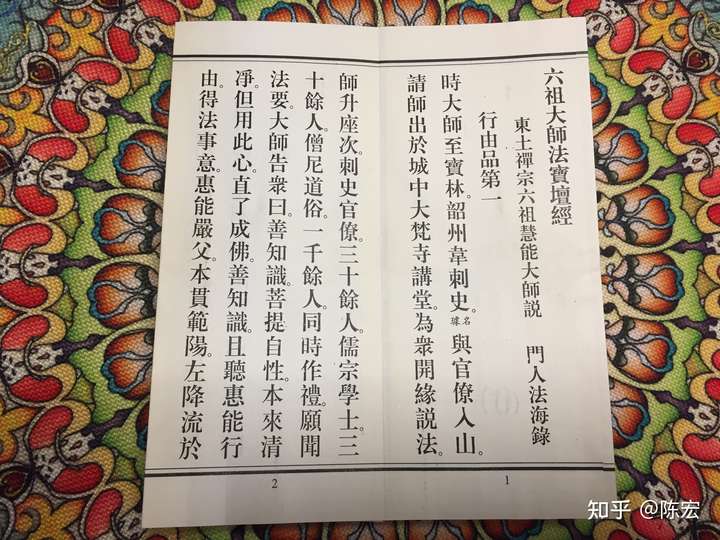 六祖大師法寶壇經
東土禪宗六祖慧能大師説　門人法海錄
行由品第一
時大師至寶林。韶州韋刺史。名璩與官僚入山。
請師出於城中大梵寺講堂。為眾開緣説法。
1
師升座次。刺史官僚。三十餘人。儒宗學士。三
十餘人。僧尼道俗。一千餘人。同時作禮。願聞
法要。大師告眾曰。善知識。菩提自性。本來清
淨。但用此心。直了成佛。善知識。且聽惠能行
由。得法事意。惠能嚴父。本貫範陽。左降流於
2
知乎 @陈宏